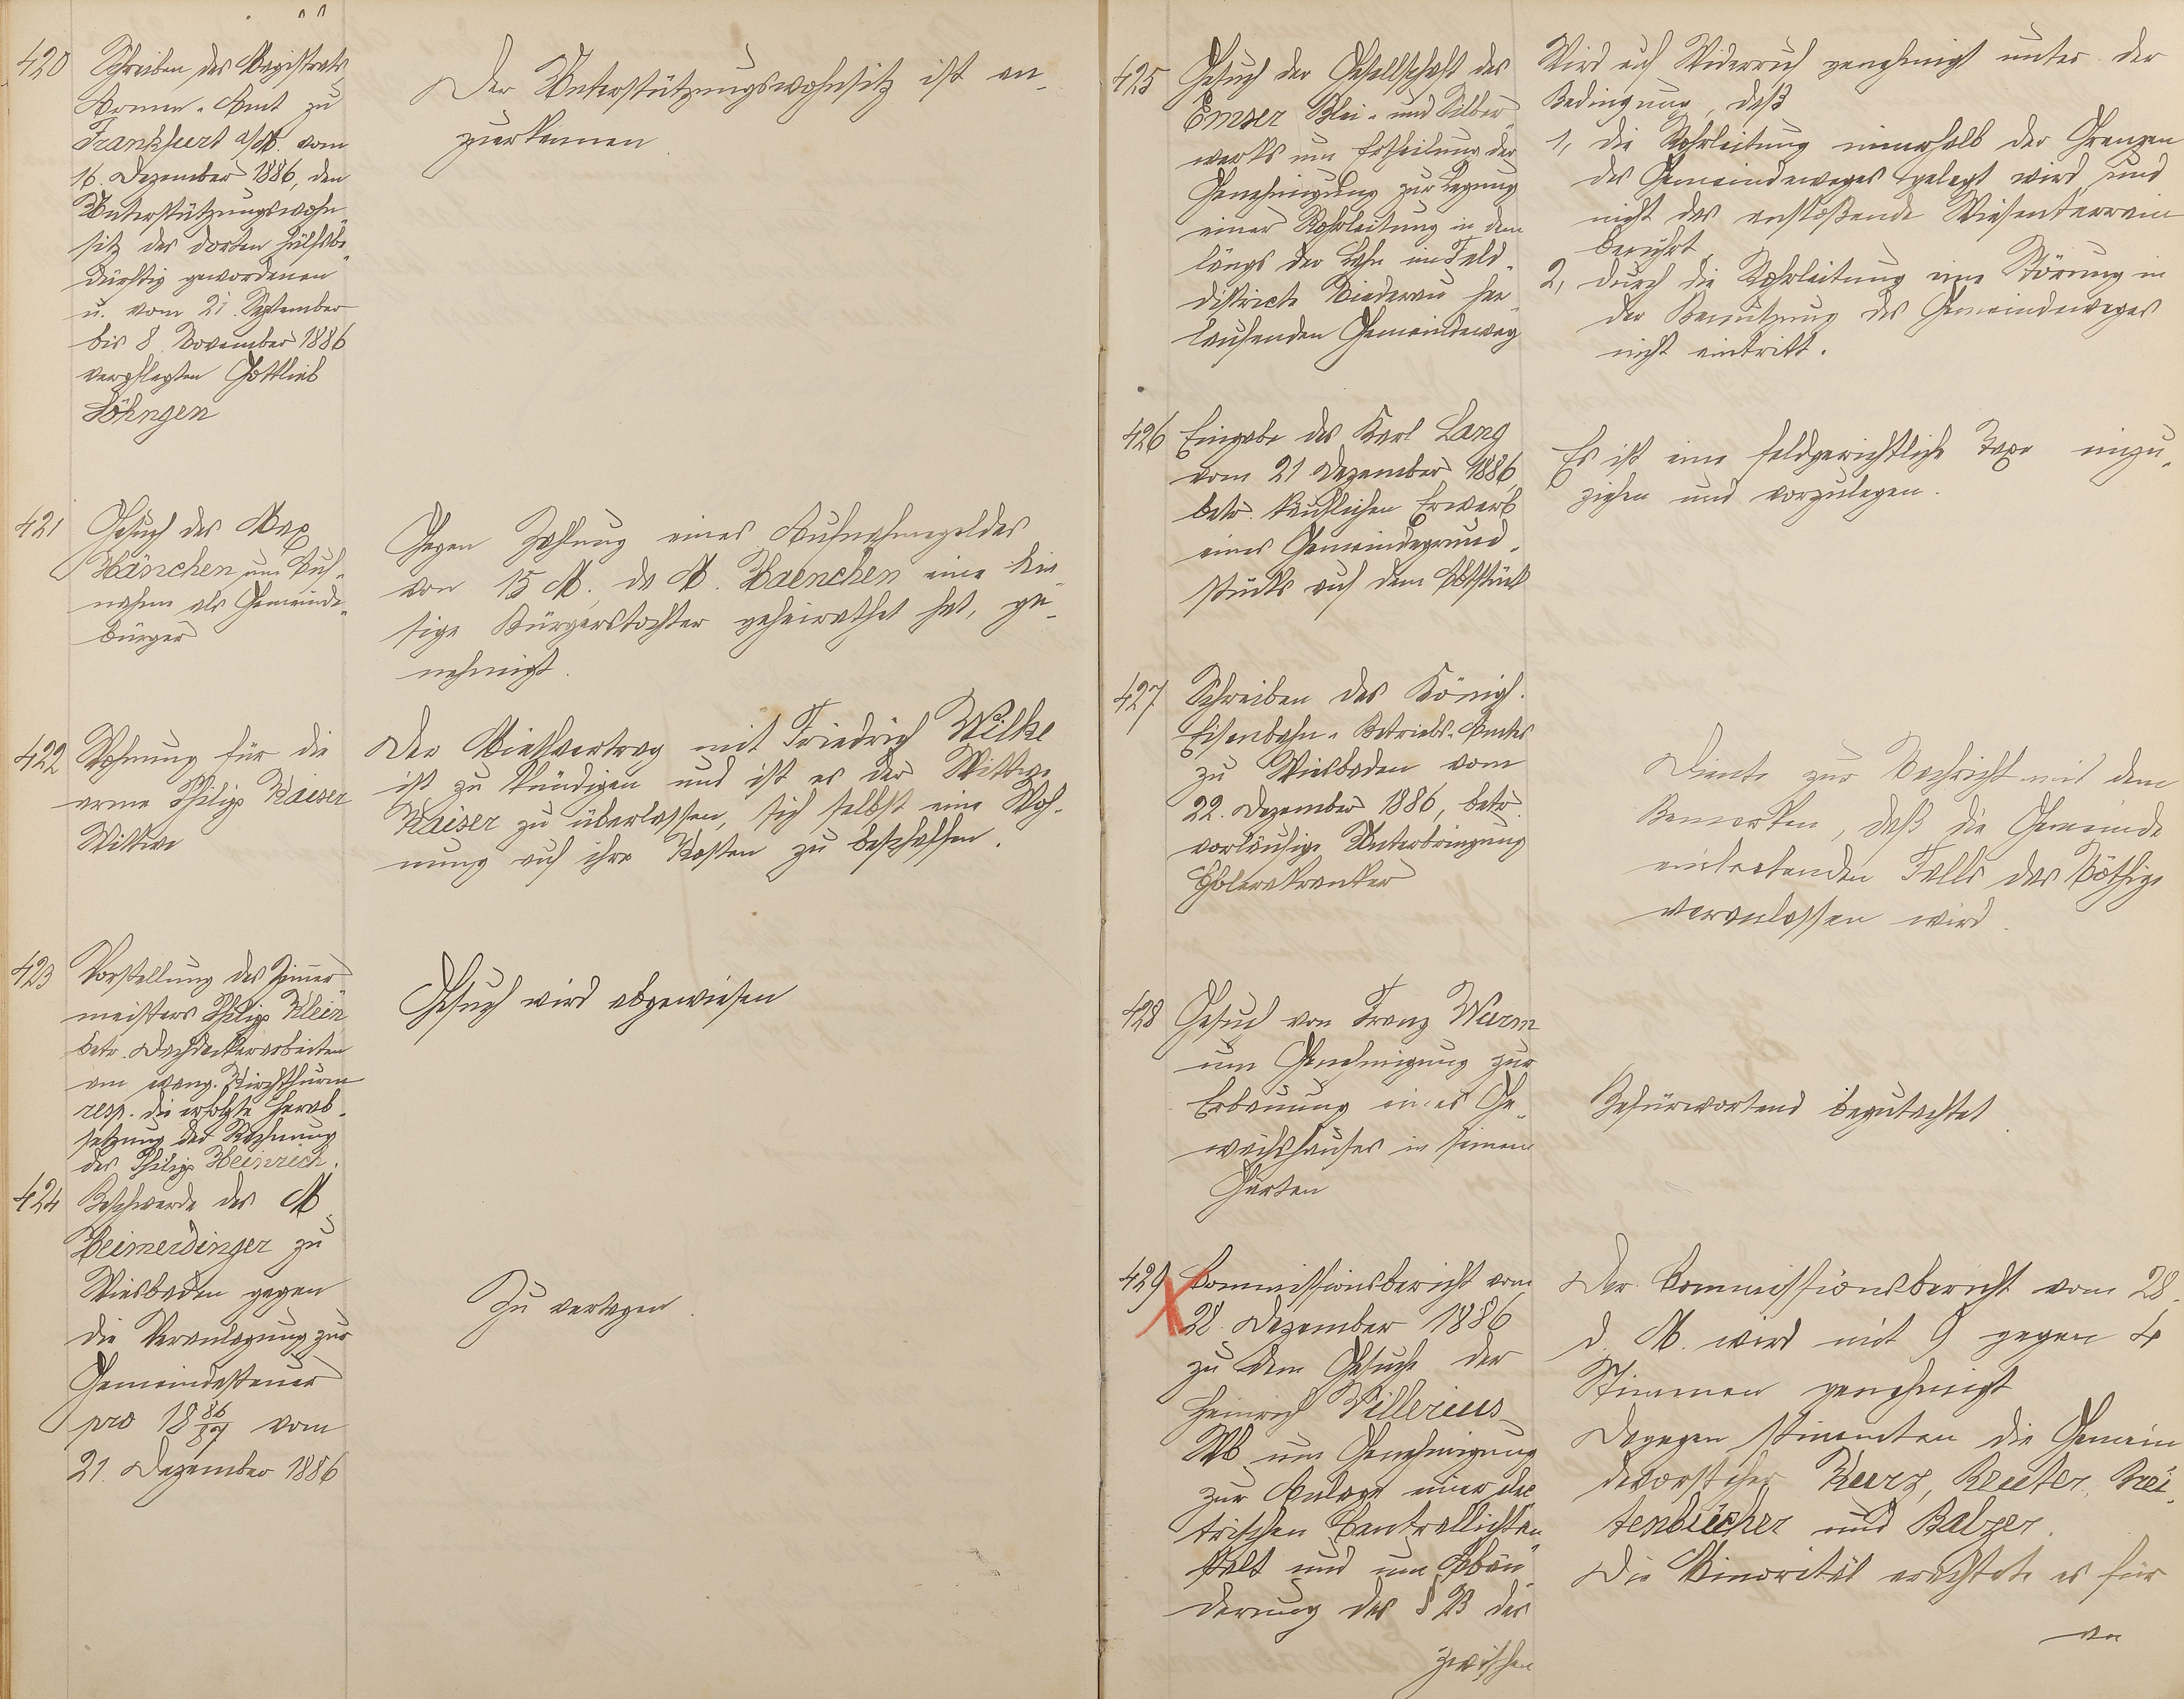 420
Schreiben des Magistrats,
Armen-Amt zu
Frankfurt a/M. vom
16. Dezember 1886, den
Unterstützungswohn-
sitz des dorten hülfsbe-
dürftig gewordenen
u. vom 21. September
bis 8. November 1886
verpflegten Gottlieb
Söhngen
Der Unterstützungswohnsitz ist an-
zuerkennen.
421
Gesuch des Max
Hänchen um Auf-
nahme als Gemeinde-
bürger
Gegen Zahlung eines Aufnahmegeldes
von 15 M., da M. Haenchen eine hie-
sige Bürgerstochter geheirathet hat, ge-
nehmigt.
422
Wohnung für die
arme Philipp Kaiser
Wittwe
Der Miethvertrag mit Friedrich Wilke
ist zu kündigen und ist es der Wittwe
Kaiser zu überlassen, sich selbst eine Woh-
nung auf ihre Kosten zu beschaffen.
423
Vorstellung des Zimmer-
meisters Philipp Klein
betr. Dachdeckerarbeiten
am evang. Kirchthurm
resp. die erfolgte Herab-
setzung der Rechnung
des Philipp Heinrich.
Gesuch wird abgewiesen
424
Beschwerde des M.
Heimerdinger zu
Wiesbaden gegen
die Veranlagung zur
Gemeindesteuer
pro 1886/87 vom
21. Dezember 1886
Zu vertagen.
425
Gesuch der Gesellschaft des
Emser Blei- und Silber-
werks um Ertheilung der
Genehmigung zur Legung
einer Rohrleitung in dem
längs der Lahn im Feld-
districte Niederau her-
laufenden Gemeindeweg
Wird auf Widerruf genehmigt unter der
Bedingung, daß
1, die Rohrleitung innerhalb der Grenzen
des Gemeindeweges gelegt wird und
nicht das anstoßende Wiesenterrain
berührt.
2, durch die Rohrleitung eine Störung in
der Benutzung des Gemeindeweges
nicht eintritt.
426
Eingabe des Karl Lang
vom 21 Dezember 1886,
betr. käuflichen Erwerb
eines Gemeindegrund-
stücks auf dem
Es ist eine feldgerichtliche Taxe einzu-
ziehen und vorzulegen.
427
Schreiben des Königl.
Eisenbahn-Betriebs-Amtes
zu Wiesbaden vom
22. Dezember 1886, betr.
vorläufige Unterbringung
Cholerakranker
Diente zur Nachricht mit dem
Bemerken, daß die Gemeinde
eintretenden Falls das Nöthige
veranlassen wird.
428
Gesuch von Franz Wurm
um Genehmigung zur
Erbauung eines Ge-
wächshauses in seinem
Garten
Befürwortend begutachtet.
429
Commissionsbericht vom
28. Dezember 1886
zu dem Gesuche der
Heinrich Villerius
Wb. um Genehmigung
zur Anlage einer elec-
trischen Centrallichtan-
stalt und um Abän-
derung des § 23 des
zwischen
Der Commissionsbericht vom 28.
d. M. wird mit 9 gegen 4
Stimmen genehmigt
Dagegen stimmten die Gemein-
devorsteher Kurz, Reuter, Brei-
tenbücher und Balzer.
Die Minorität erachtete es für
an